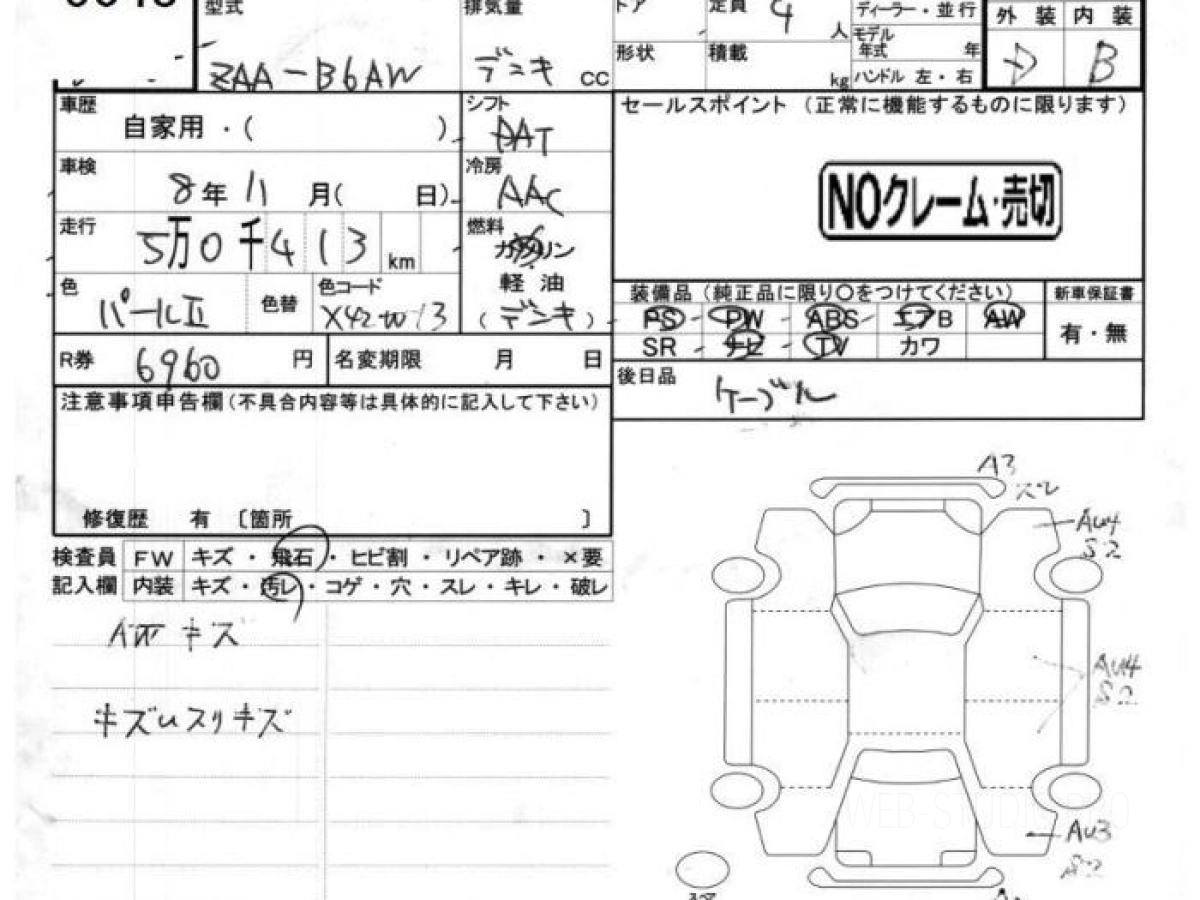 型式
排気量
ドア
定員 4 人
ディーラー・並行
外 装 内 装
ZAA-B6AW
デンキ cc
形状
積載 kg
モデル年式 年
ハンドル 左・右
D B
車歴
自家用・( )
シフト
セールスポイント (正常に機能するものに限ります)
車検
8年 11月( 日)
冷房
AAC
NOクレーム・売切
走行
5万0千413 km
燃料
ガソリン
軽 油
(デンキ)
色
パールⅡ
色替
色コード
装備品 (純正品に限り○をつけてください)
新車保証書
PS PW ABS エアB AW
有・無
SR ナビ TV カワ
R券
6960円
名変期限 月 日
後日品
ケーブル
注意事項申告欄(不具合内容等は具体的に記入して下さい)
修復歴 有 〔箇所 〕
検査員
記入欄
FW キズ・飛石・ヒビ割・リペア跡・×要
内装 キズ・汚レ・コゲ・穴・スレ・キレ・破レ
キズ
A3
ズレ
AU4
S2
AU4
S2
AU3
S2
WEB-STUDIO.PRO